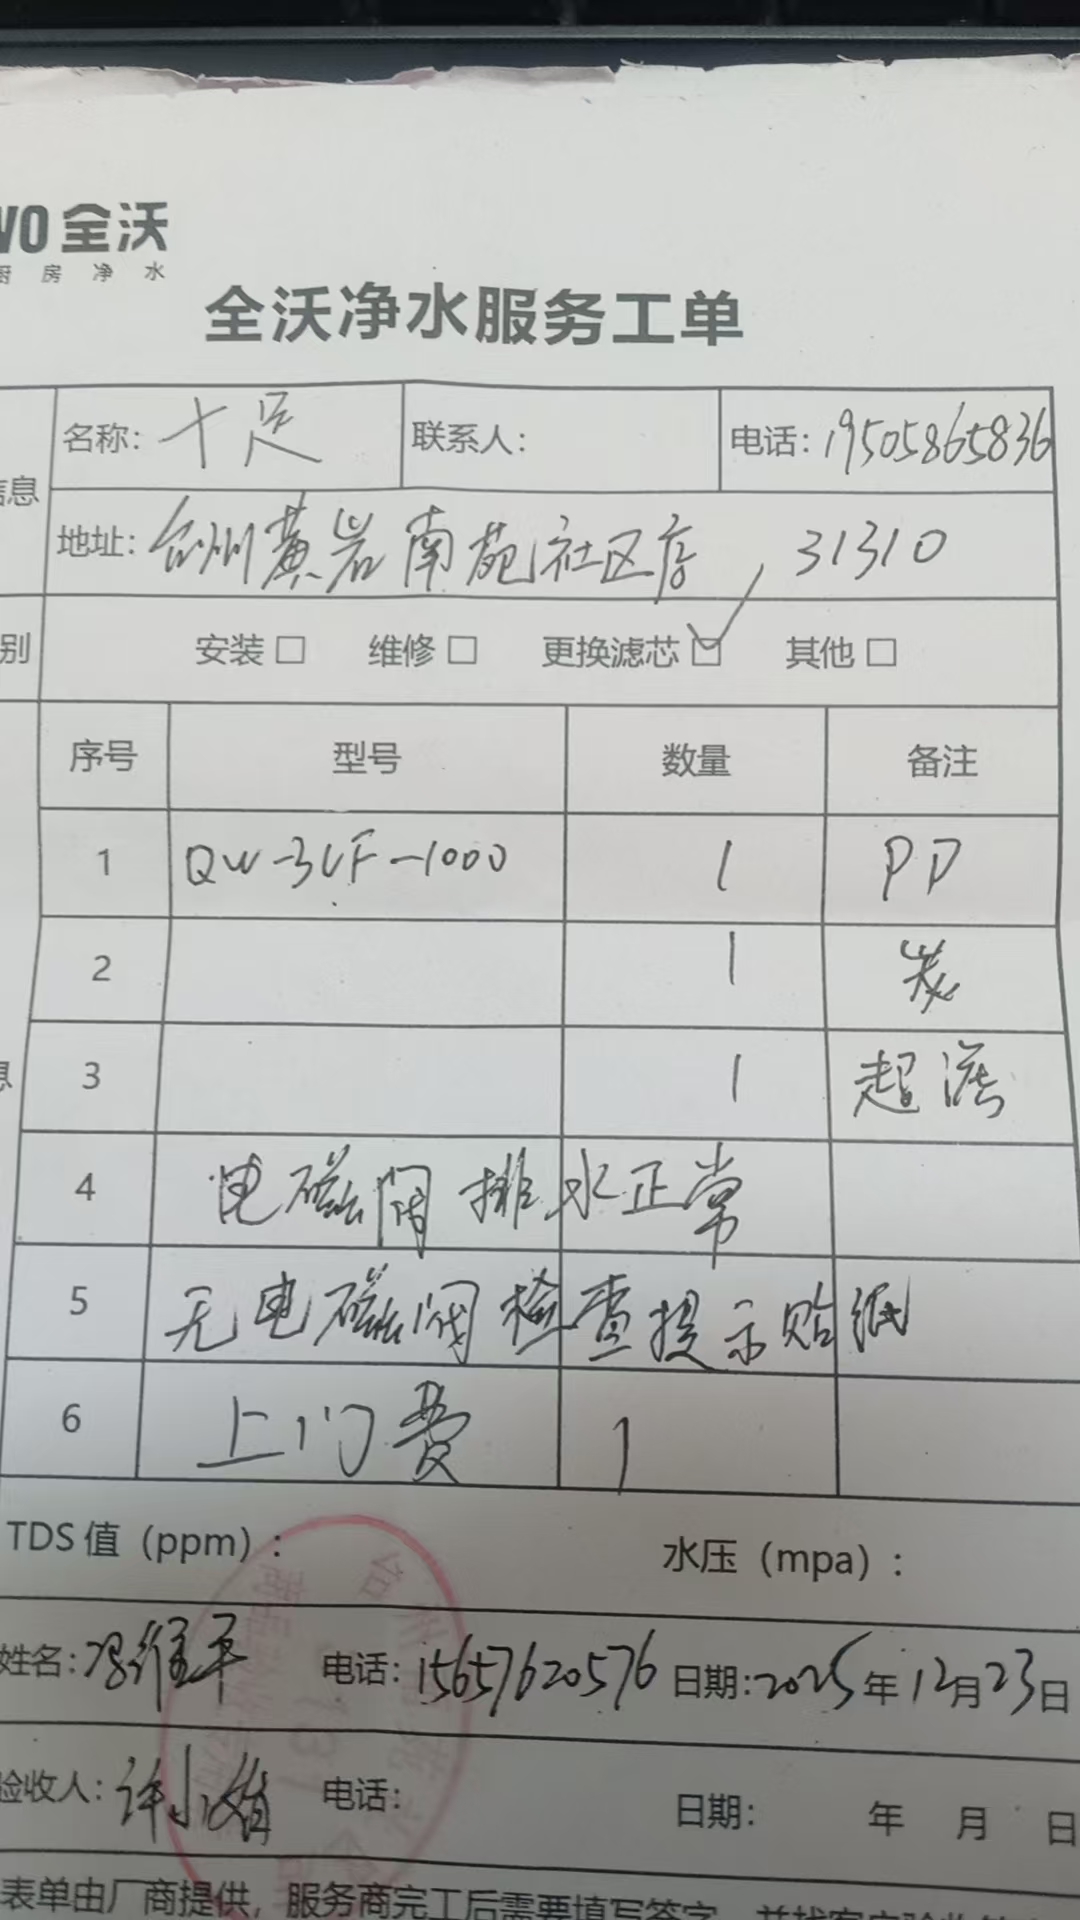 VO 全沃
厨房净水
全沃净水服务工单
信息 名称: 十足 联系人: 电话: 19505865836
地址: 台州黄岩南苑社区店, 31310
别 安装 □ 维修 □ 更换滤芯 ☑ 其他 □
序号 型号 数量 备注
1 QW-3UF-1000 1 PP
2 1 炭
3 1 超滤
4 电磁阀排水正常
5 无电磁阀检查提示贴纸
6 上门费 1
TDS 值 (ppm): 水压 (mpa):
姓名: 冯维平 电话: 15657620576 日期: 2025年12月23日
验收人: 许小娟 电话: 日期: 年 月 日
表单由厂商提供, 服务商完工后需要填写签字